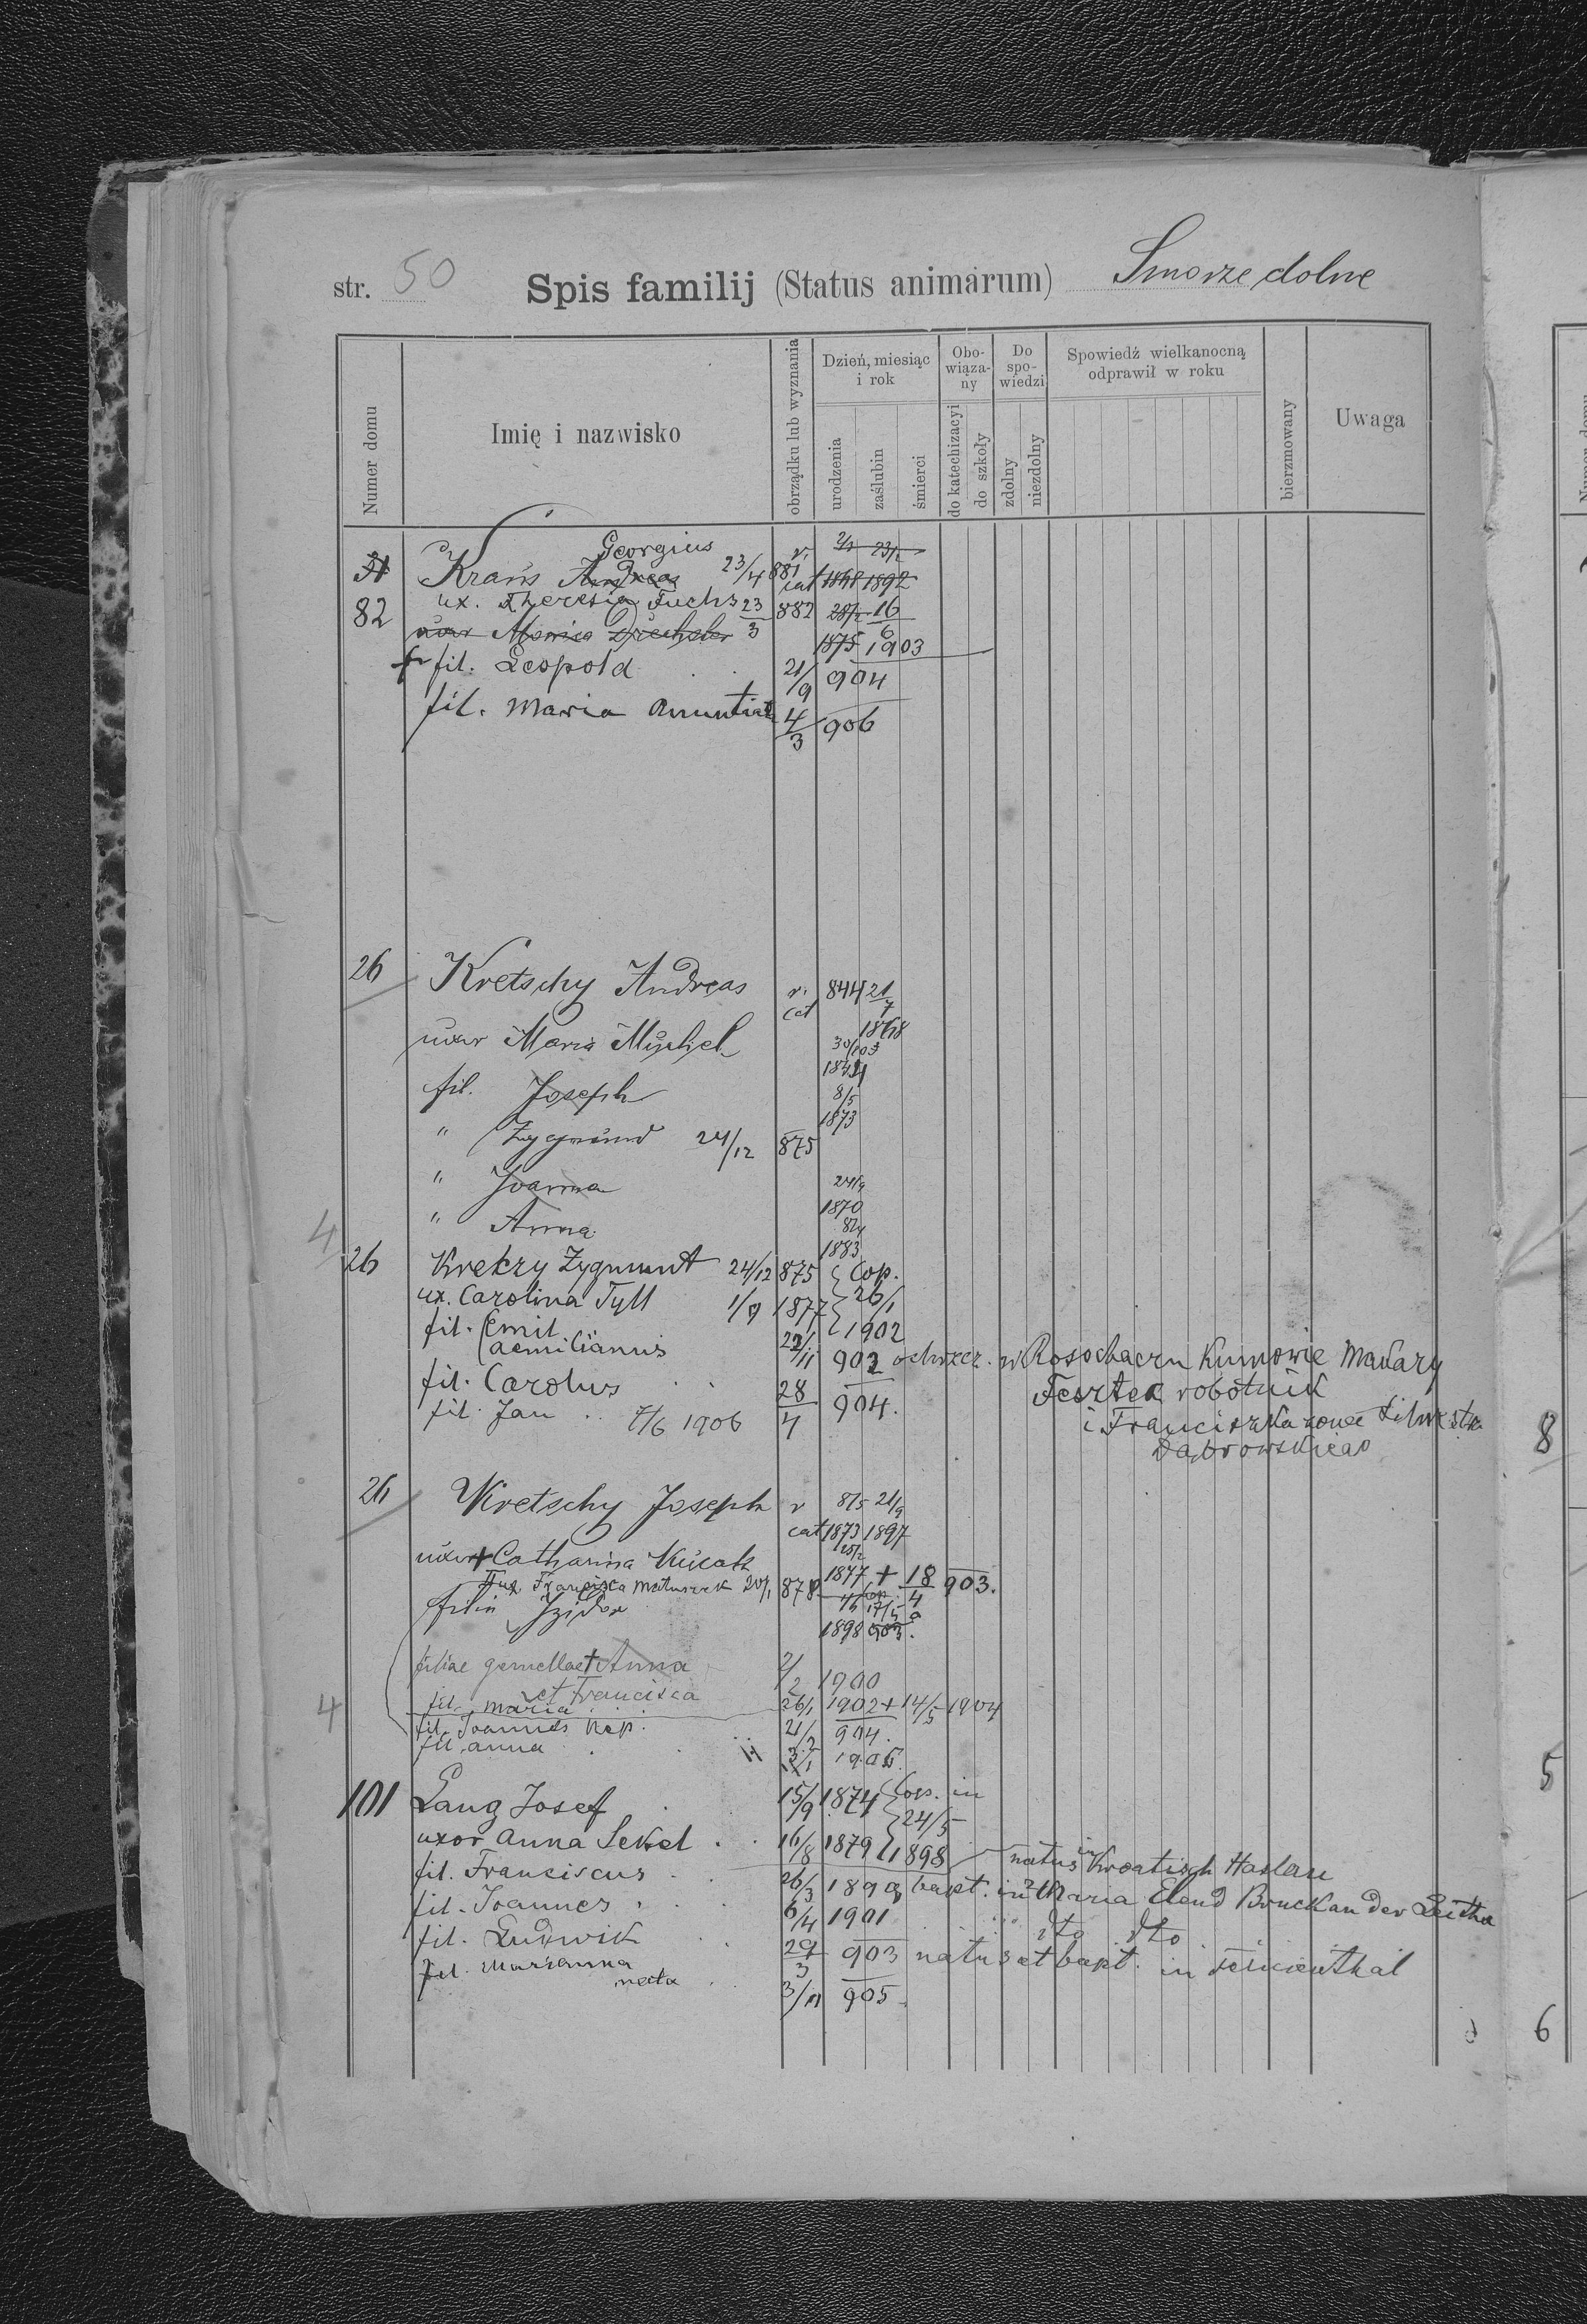 str. 50 Spis familij (Status animarum) Smorze dolne
Numer domu
Imię i nazwisko
obrządku lub wyznania
Dzień, miesiąc i rok
urodzenia
zaślubin
śmierci
Obowiązany
do katechizacyi
do szkoły
Do spowiedzi
zdolny
niezdolny
Spowiedź wielkanocną odprawił w roku
bierzmowany
Uwaga
Georgius r. 23/2
31 Kraus Andreas 23/4 881 cat 1868 1892
82 ux. Theresia Fuchs 23/3 882 16/6
uxor Monica Drechsler 1875 1903
+ fil. Leopold 21/9 904
fil. Maria Anuntiata 4/3 906
26 Kretschy Andreas r. cat 844 21/7 1868
uxor Maria Müchel 30/103
fil. Joseph 8/5 1873
" Zygmund 24/12 875
" Joanna 24/9 1870
" Anna 8/4 1883
4
26 Krekzy Zygmunt 24/12 875 Cop.
ux. Carolina Tyll 1/9 1877 26/1
fil. Emil 1902
aemilianus 22/11 902 ochrzcz. w Rosochaczu Kumowie Makary
fil. Carolus 28/4 904. Fesztek robotnik
fil. Jan 7/6 1906 i Franciszka żona
Dąbrowskiego
26 Kretschy Joseph r cat 8/5 1873 21/9 1897
uxor + Catharina Kucak 25/2 1877 + 18/4 903.
II ux Franciska Matuszek 20/1 878 cop 17/5
filii Izidor 4/5 1898 903.
filiae gemellae + Anna 2/2 1900
et Francisca
4 fil. Maria 26/1 1902 + 14/5 1904
fil. Joannes Nep. 21/2 904.
fil. anna
101 Lang Josef 15/9 1874 Cop. in
24/5
uxor Anna Sekel 16/8 1879 1898
fil. Franciscus 26/3 natus in Kroatisch Haslau
bapt. in Maria Elend Bruck an der Leitha
fil. Joannes 6/4 1901 dto dto
fil. Ludwik 29/3 903 natus et bapt. in Felicienthal
fil. Marianna
nata 3/11 905.
8
5
6